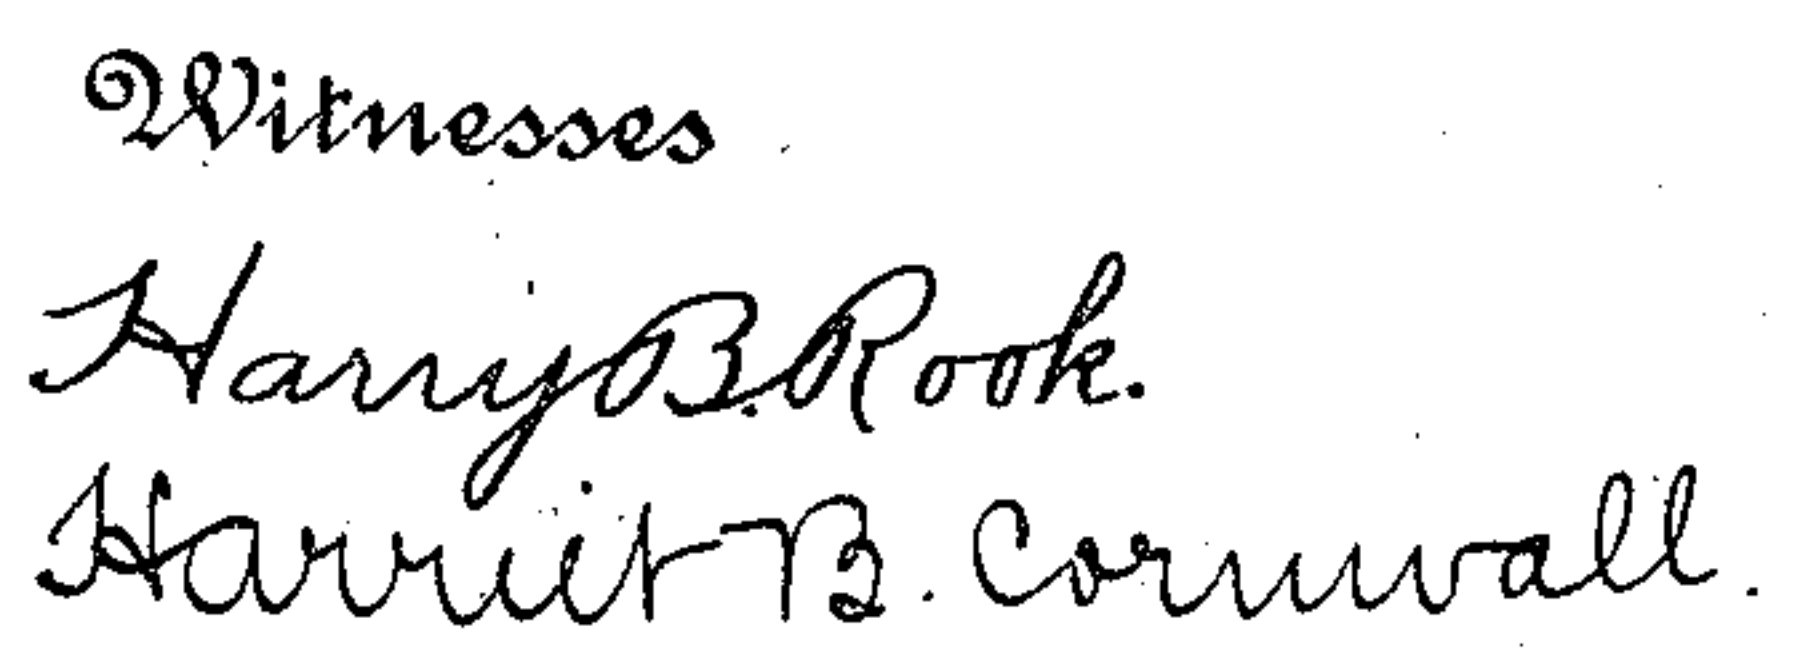 Witnesses
Harry B. Rook.
Harriet B. Cornwall.